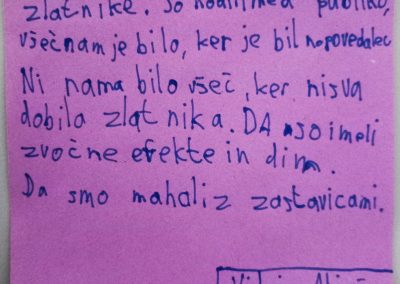 zlatnike. So hodili med publiko,
všeč nam je bilo, ker je bil napovedalec
Ni nama bilo všeč, ker nisva
dobila zlatnika. DA so imeli
zvočne efekte in dim.
Da smo mahali z zastavicami.